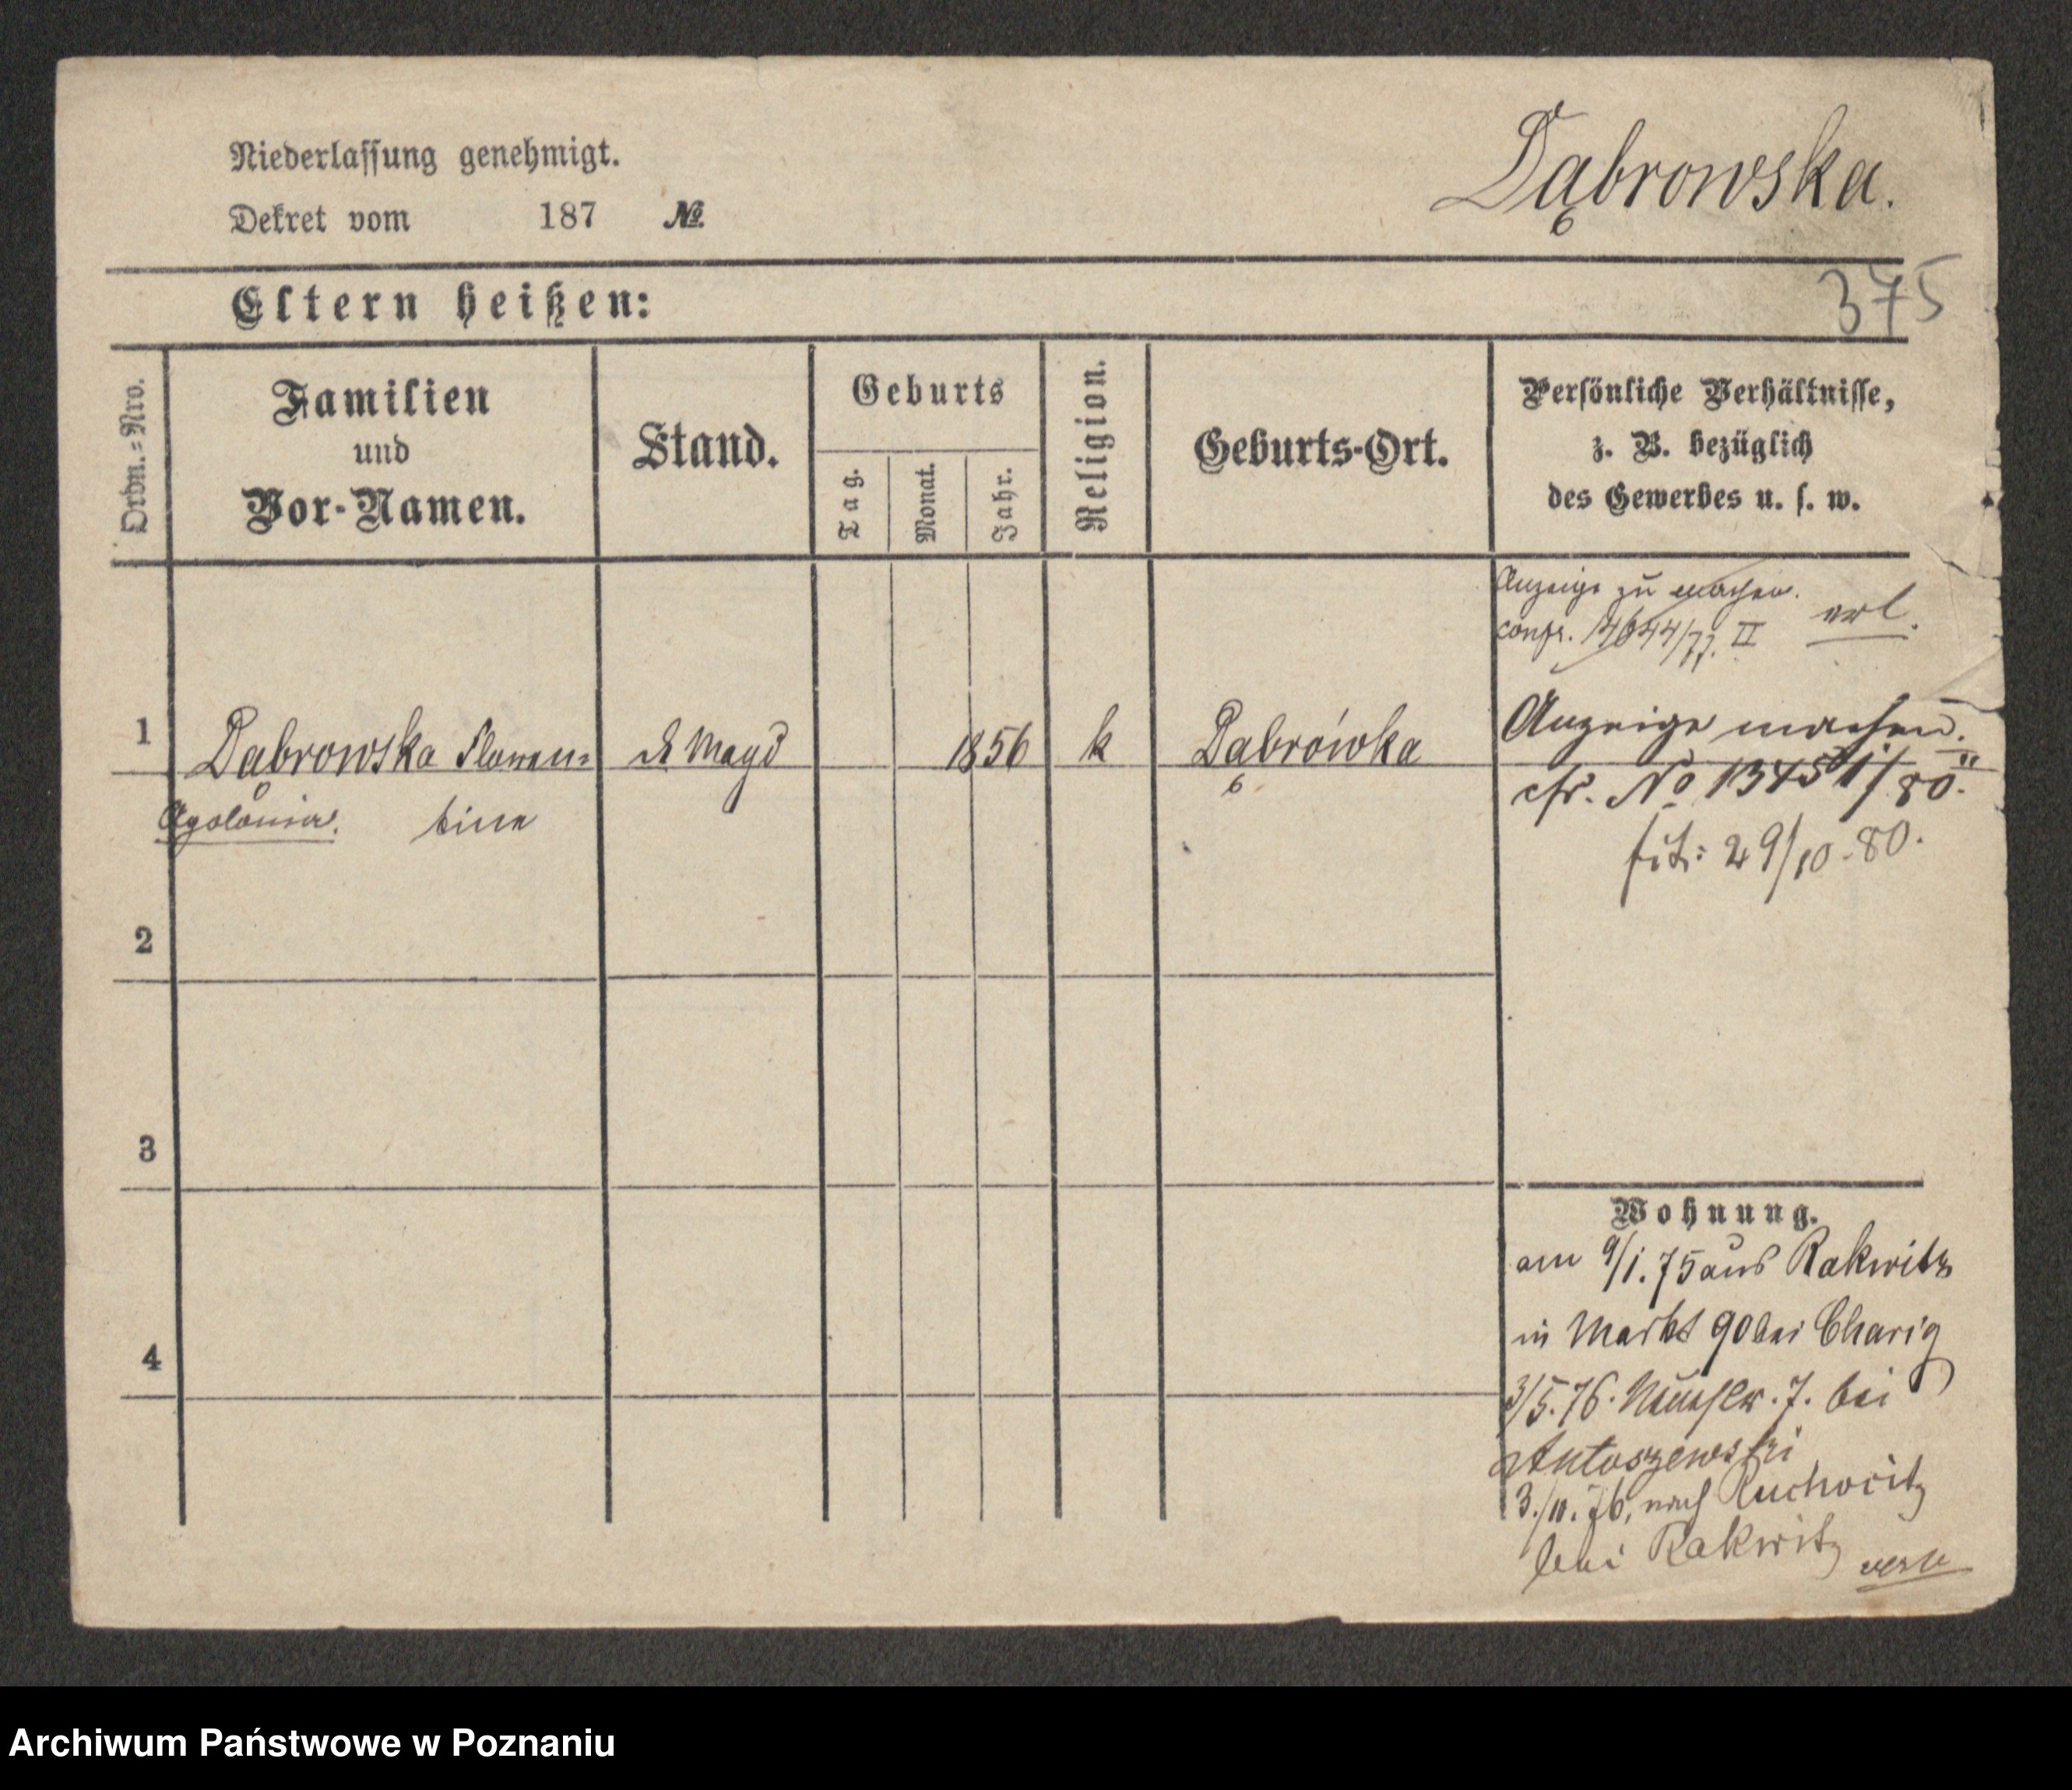 Niederlassung genehmigt.
Dąbrowska.
Dekret vom 187 №
375
Eltern heißen:
Ordn.=Nro.
Familien
und
Vor-Namen.
Stand.
Geburts
Tag.
Monat.
Jahr.
Religion.
Geburts-Ort.
Persönliche Verhältnisse,
z. B. bezüglich
des Gewerbes u. s. w.
Anzeige zu machen.
14644/77. II erl.
1
Dąbrowska Floren=
Magd
1856
k
Dąbrówka
Anzeige machen.
cfr. No 13451/80.
Apolonia. tine
29/10-80.
2
3
4
Wohnung.
am 9/1.75 aus Rakwitz
in Markt 90 bei Charig
3/5.76. 7. bei
Antoszewski
3./11.76, nach Ruchocitz
bei Rakwitz
Archiwum Państwowe w Poznaniu